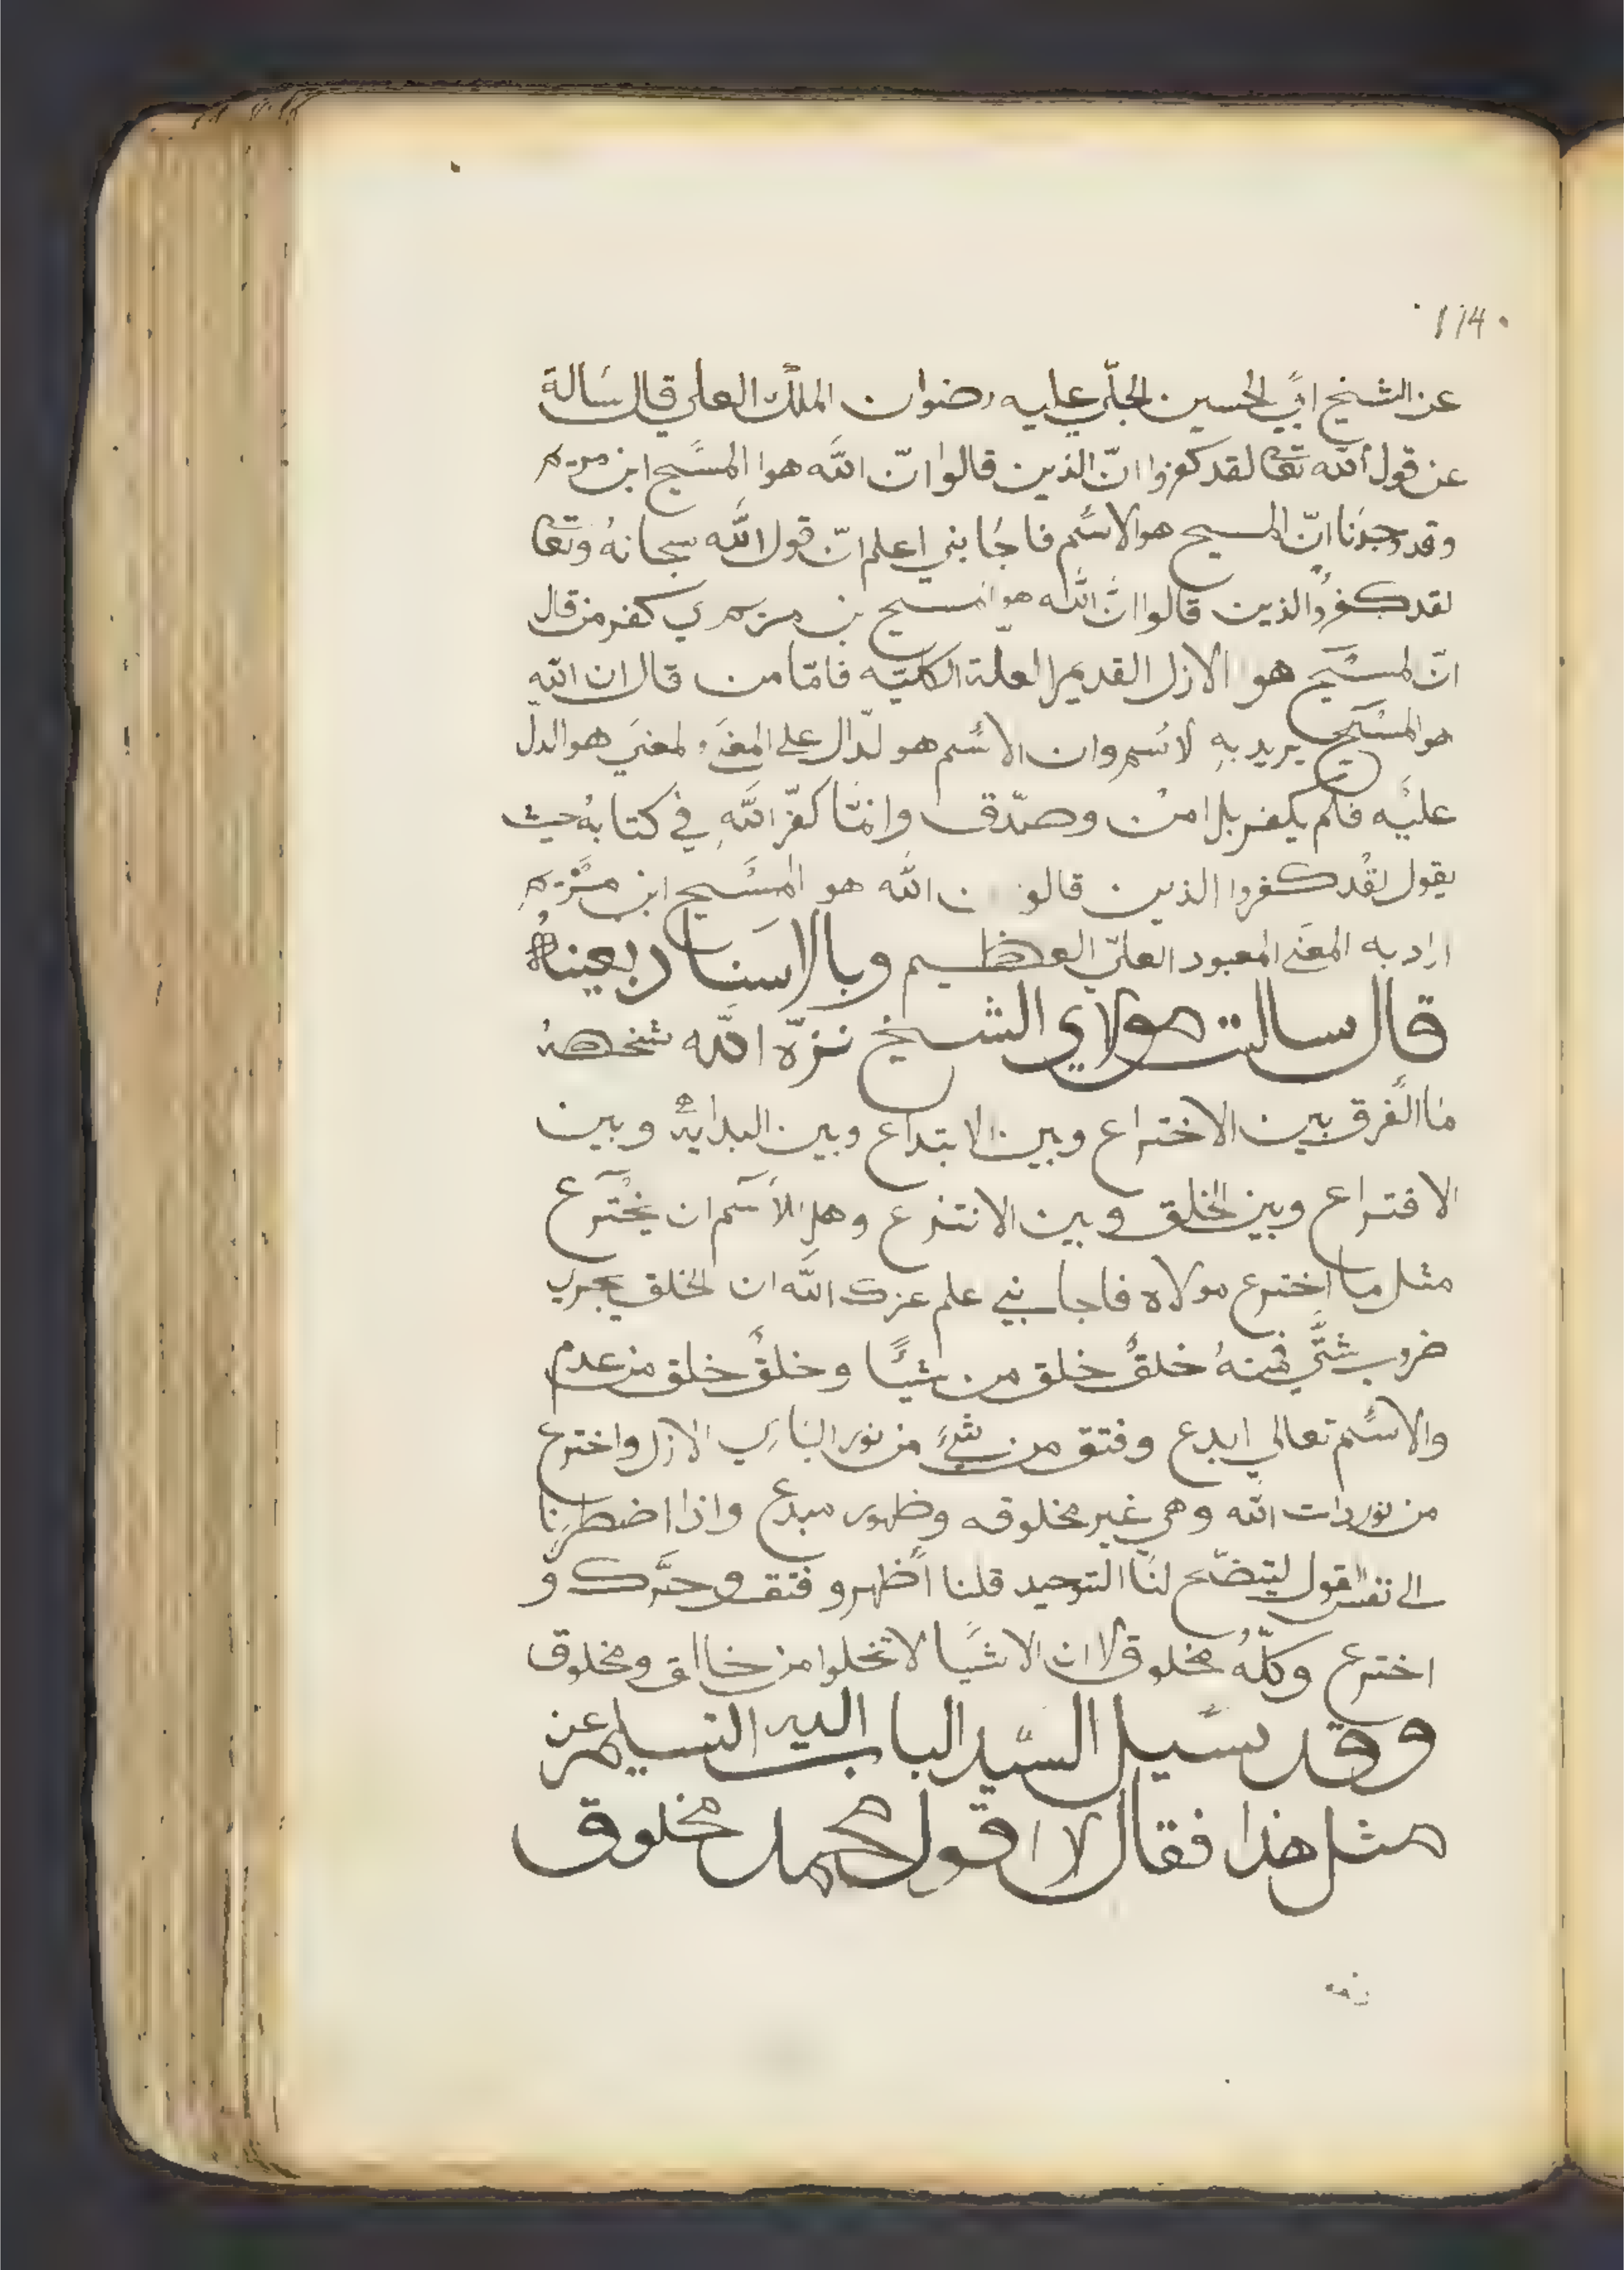 114
عن الشيخ ابي الحسين الجلّي عليه رضوان الملك العلي قال سالة
عن قول الله تعا لقد كفروا انّ الذين قالوا انّ الله هوا المسيح ابن مريم
وقد وجدنا انّ المسيح هو الاسم فاجابني اعلم انّ قول الله سبحانه وتعا
لقد كفروا الذين قالوا انّ الله هو المسيح بن مريم اي كفر من قال
انّ المسيح هو الازل القديم العلّة الكليّه فامّا من قال ان الله
هو المسيح يريد به لاسم وان الاسم هو لدّال على المعنى ولمعنى هو الدل
عليه فلم يكفر بل امن وصدّق وانمّا كفّر الله في كتابه حيث
يقول لقد كفروا الذين قالو ن الله هو المسيح ابن مريم
اراد به المعنى المعبود العليّ العظيم وبالاسناد بعينه
قال سالت مولاي الشيخ نزّه الله شخصه
ما الفرق بين الاختراع وبين الابتداع وبين البدايه وبين
الافتراع وبين الخلق وبين الانتزع وهل للاسم ان يخترع
مثل ما اخترع مولاه فاجابني علم عزك الله ان الخلق يجري
ضروب شتّى فمنه خلقٌ خلق من شيًا وخلقٌ خلق من عدم
والاسم تعالي ابدع وفتق من شيء من نور الباري الازل واخترع
من نور ذات الله وهي غير مخلوقه وظهور مبدع واذا اضطرنا
الى تفسر القول ليتضّح لنا التوحيد قلنا اظهر و فتق وحرّك و
اخترع وكلّه مخلوق لان الاشيا لا تخلوا من خاالق ومخلوق
وقد سيل السيّد الباب اليه التسليم عن
مثل هذا فقال لا اقول محمد مخلوق